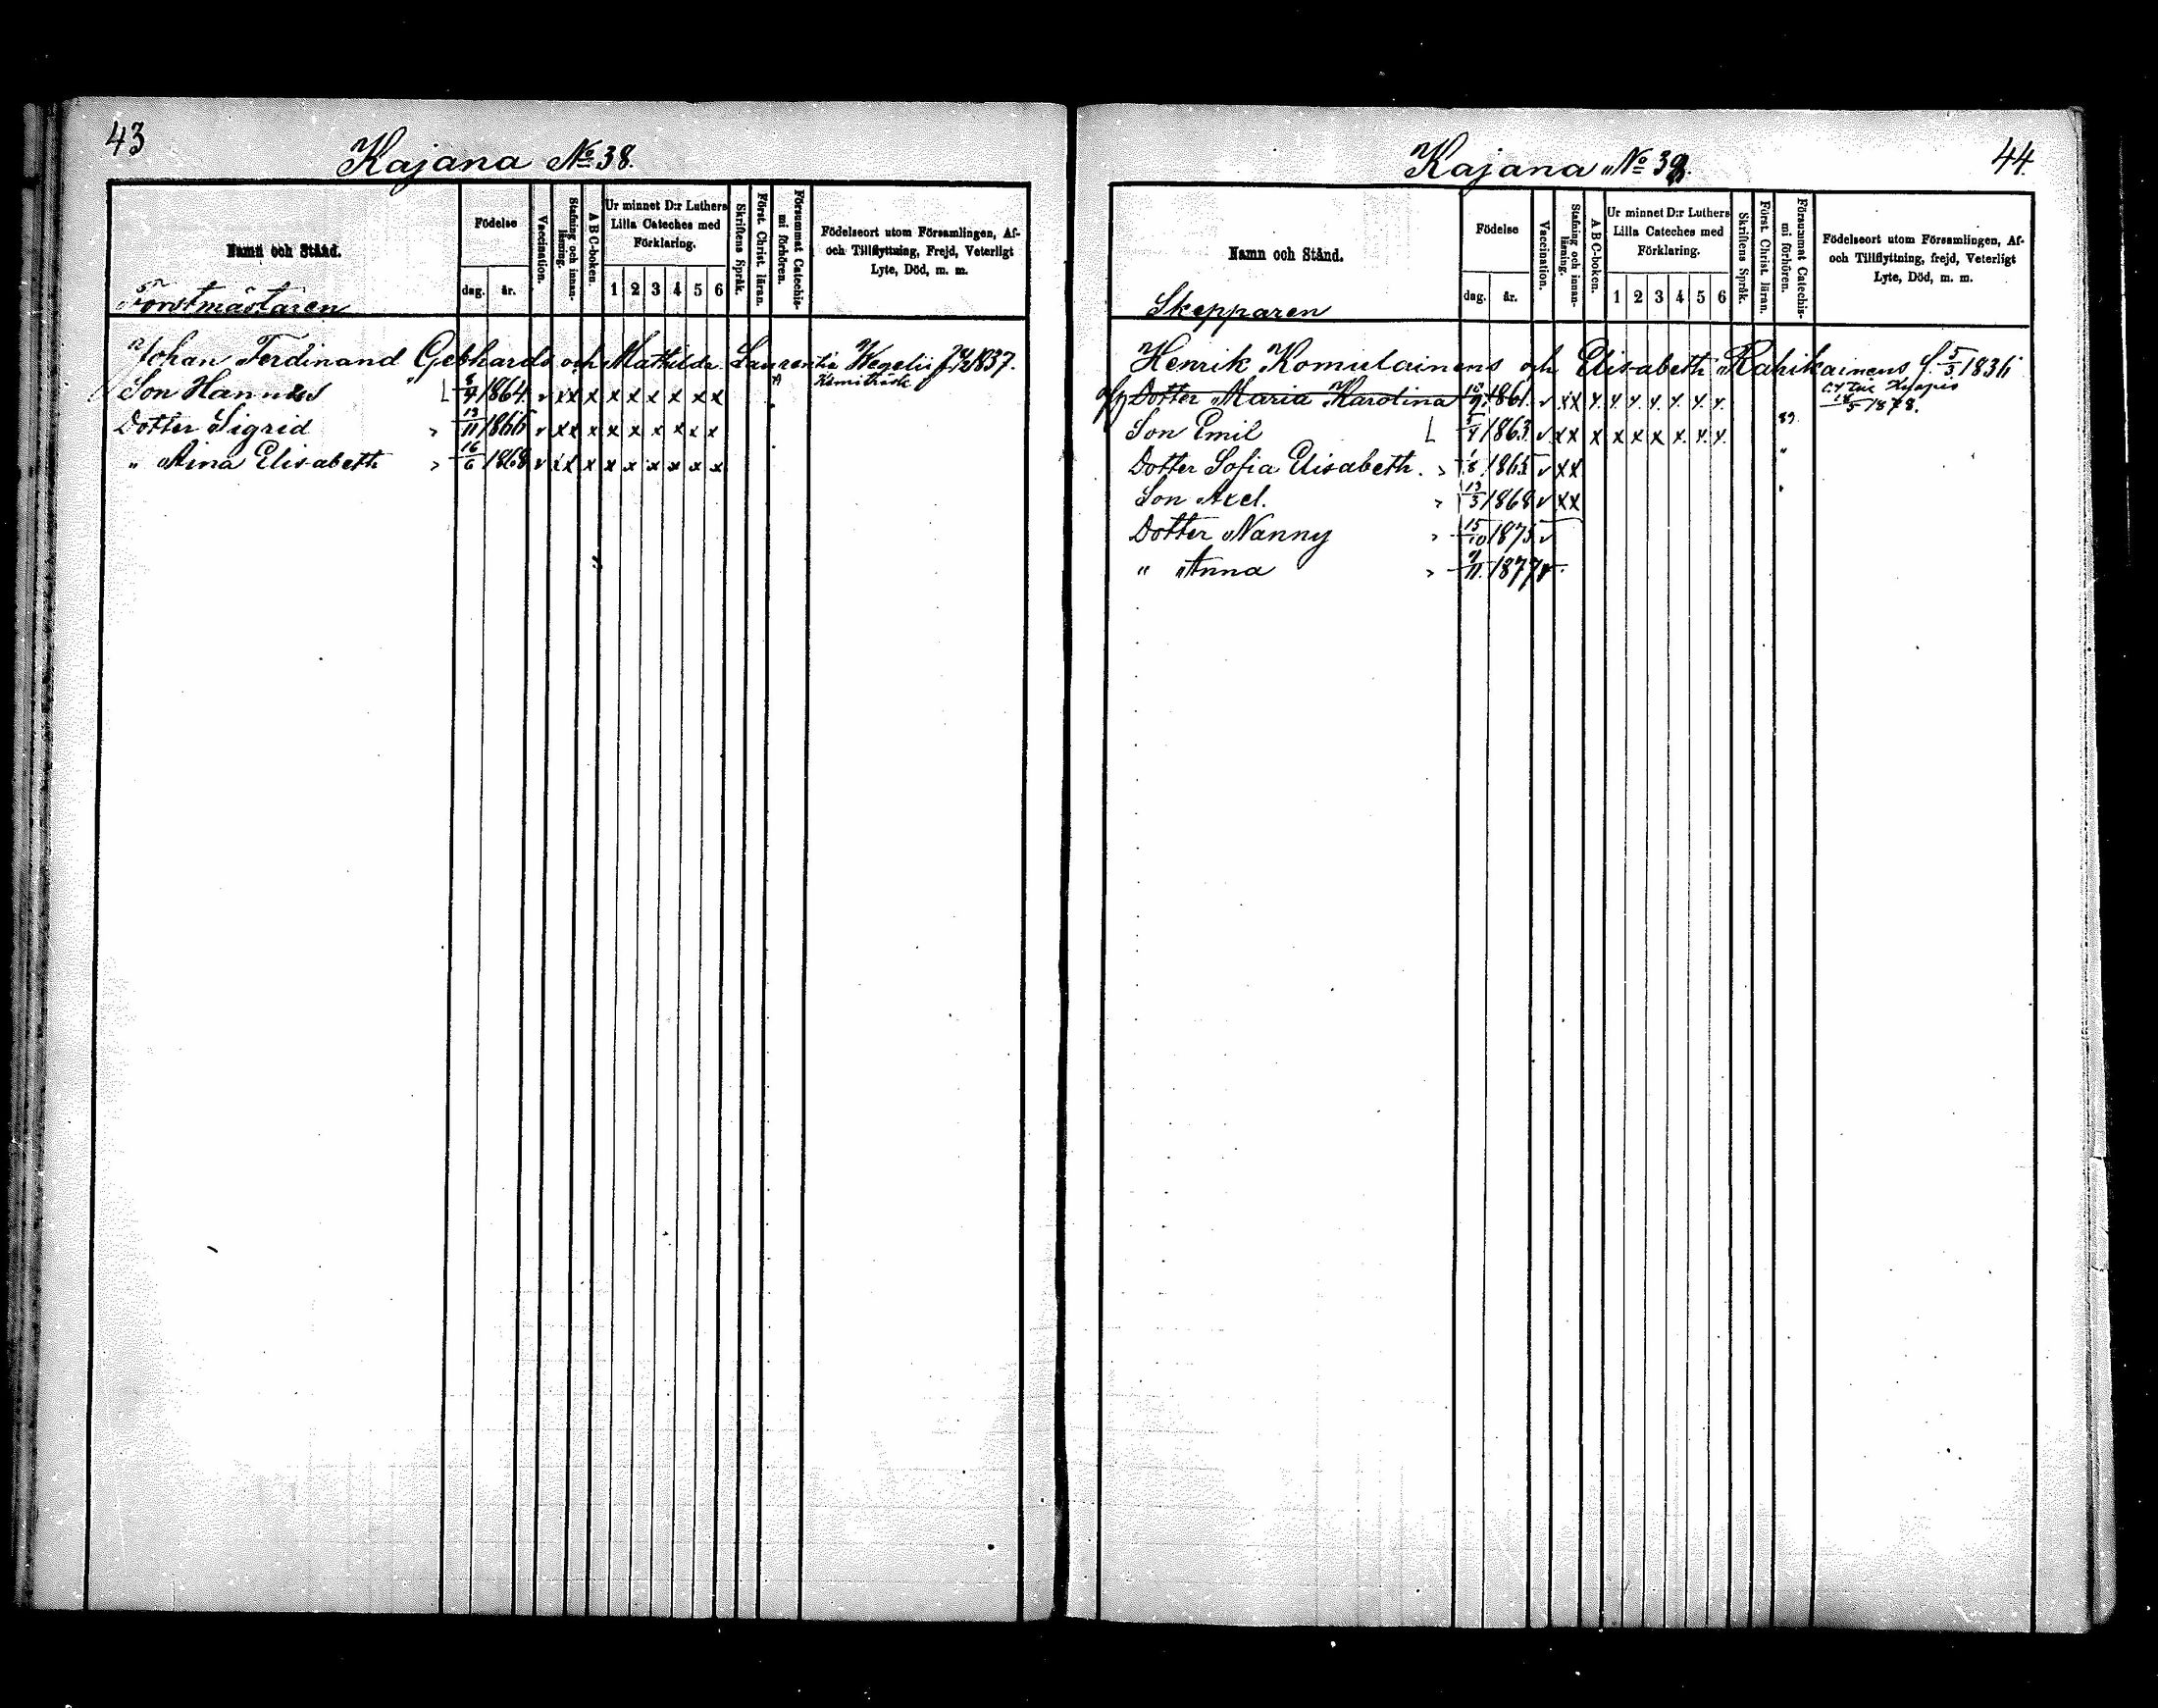 43
Kajana No 38.
Namn och Stånd.
Födelse
dag. år.
Vaccination.
Stafning och innanläsning.
A B C-boken.
Ur minnet D:r Luthers
Lilla Cateches med
Förklaring.
1 2 3 4 5 6
Skriftens Språk.
Först. Christ. läran.
Försummat Catechismi förhören.
Födelseort utom Församlingen, Af-
och Tillflyttning, Frejd, Veterligt
Lyte, Död, m. m.
Forstmästaren
Johan Ferdinand Gebhards och Mathilda Laurentia Wegelii f. 1837.
Son Hannes L 8/4 1864. v xx x x x x x x x
Dotter Sigrid " 13/11 1866 v xx x x x x x x x
" Aina Elisabeth " 16/6 1868 v xx x x x x x x x
44.
Kajana No 39.
Namn och Stånd.
Födelse
dag. år.
Vaccination.
Stafning och innanläsning.
A B C-boken.
Ur minnet D:r Luthers
Lilla Cateches med
Förklaring.
1 2 3 4 5 6
Skriftens Språk.
Först. Christ. läran.
Försummat Catechismi förhören.
Födelseort utom Församlingen, Af-
och Tillflyttning, frejd, Veterligt
Lyte, Död, m. m.
Skepparen
Henrik Komulainens och Elisabeth Rahikainens f. 5/3 1836
Dotter Maria Karolina 1861. v xx x x x x x x x 1878.
Son Emil L 1863 v xx x x x x x x x
Dotter Sofia Elisabeth. " 1/8 1865 v xx
Son Axel. " 13/3 1868 v xx
Dotter Nanny " 15/10 1875 v
" Anna " 1877 v